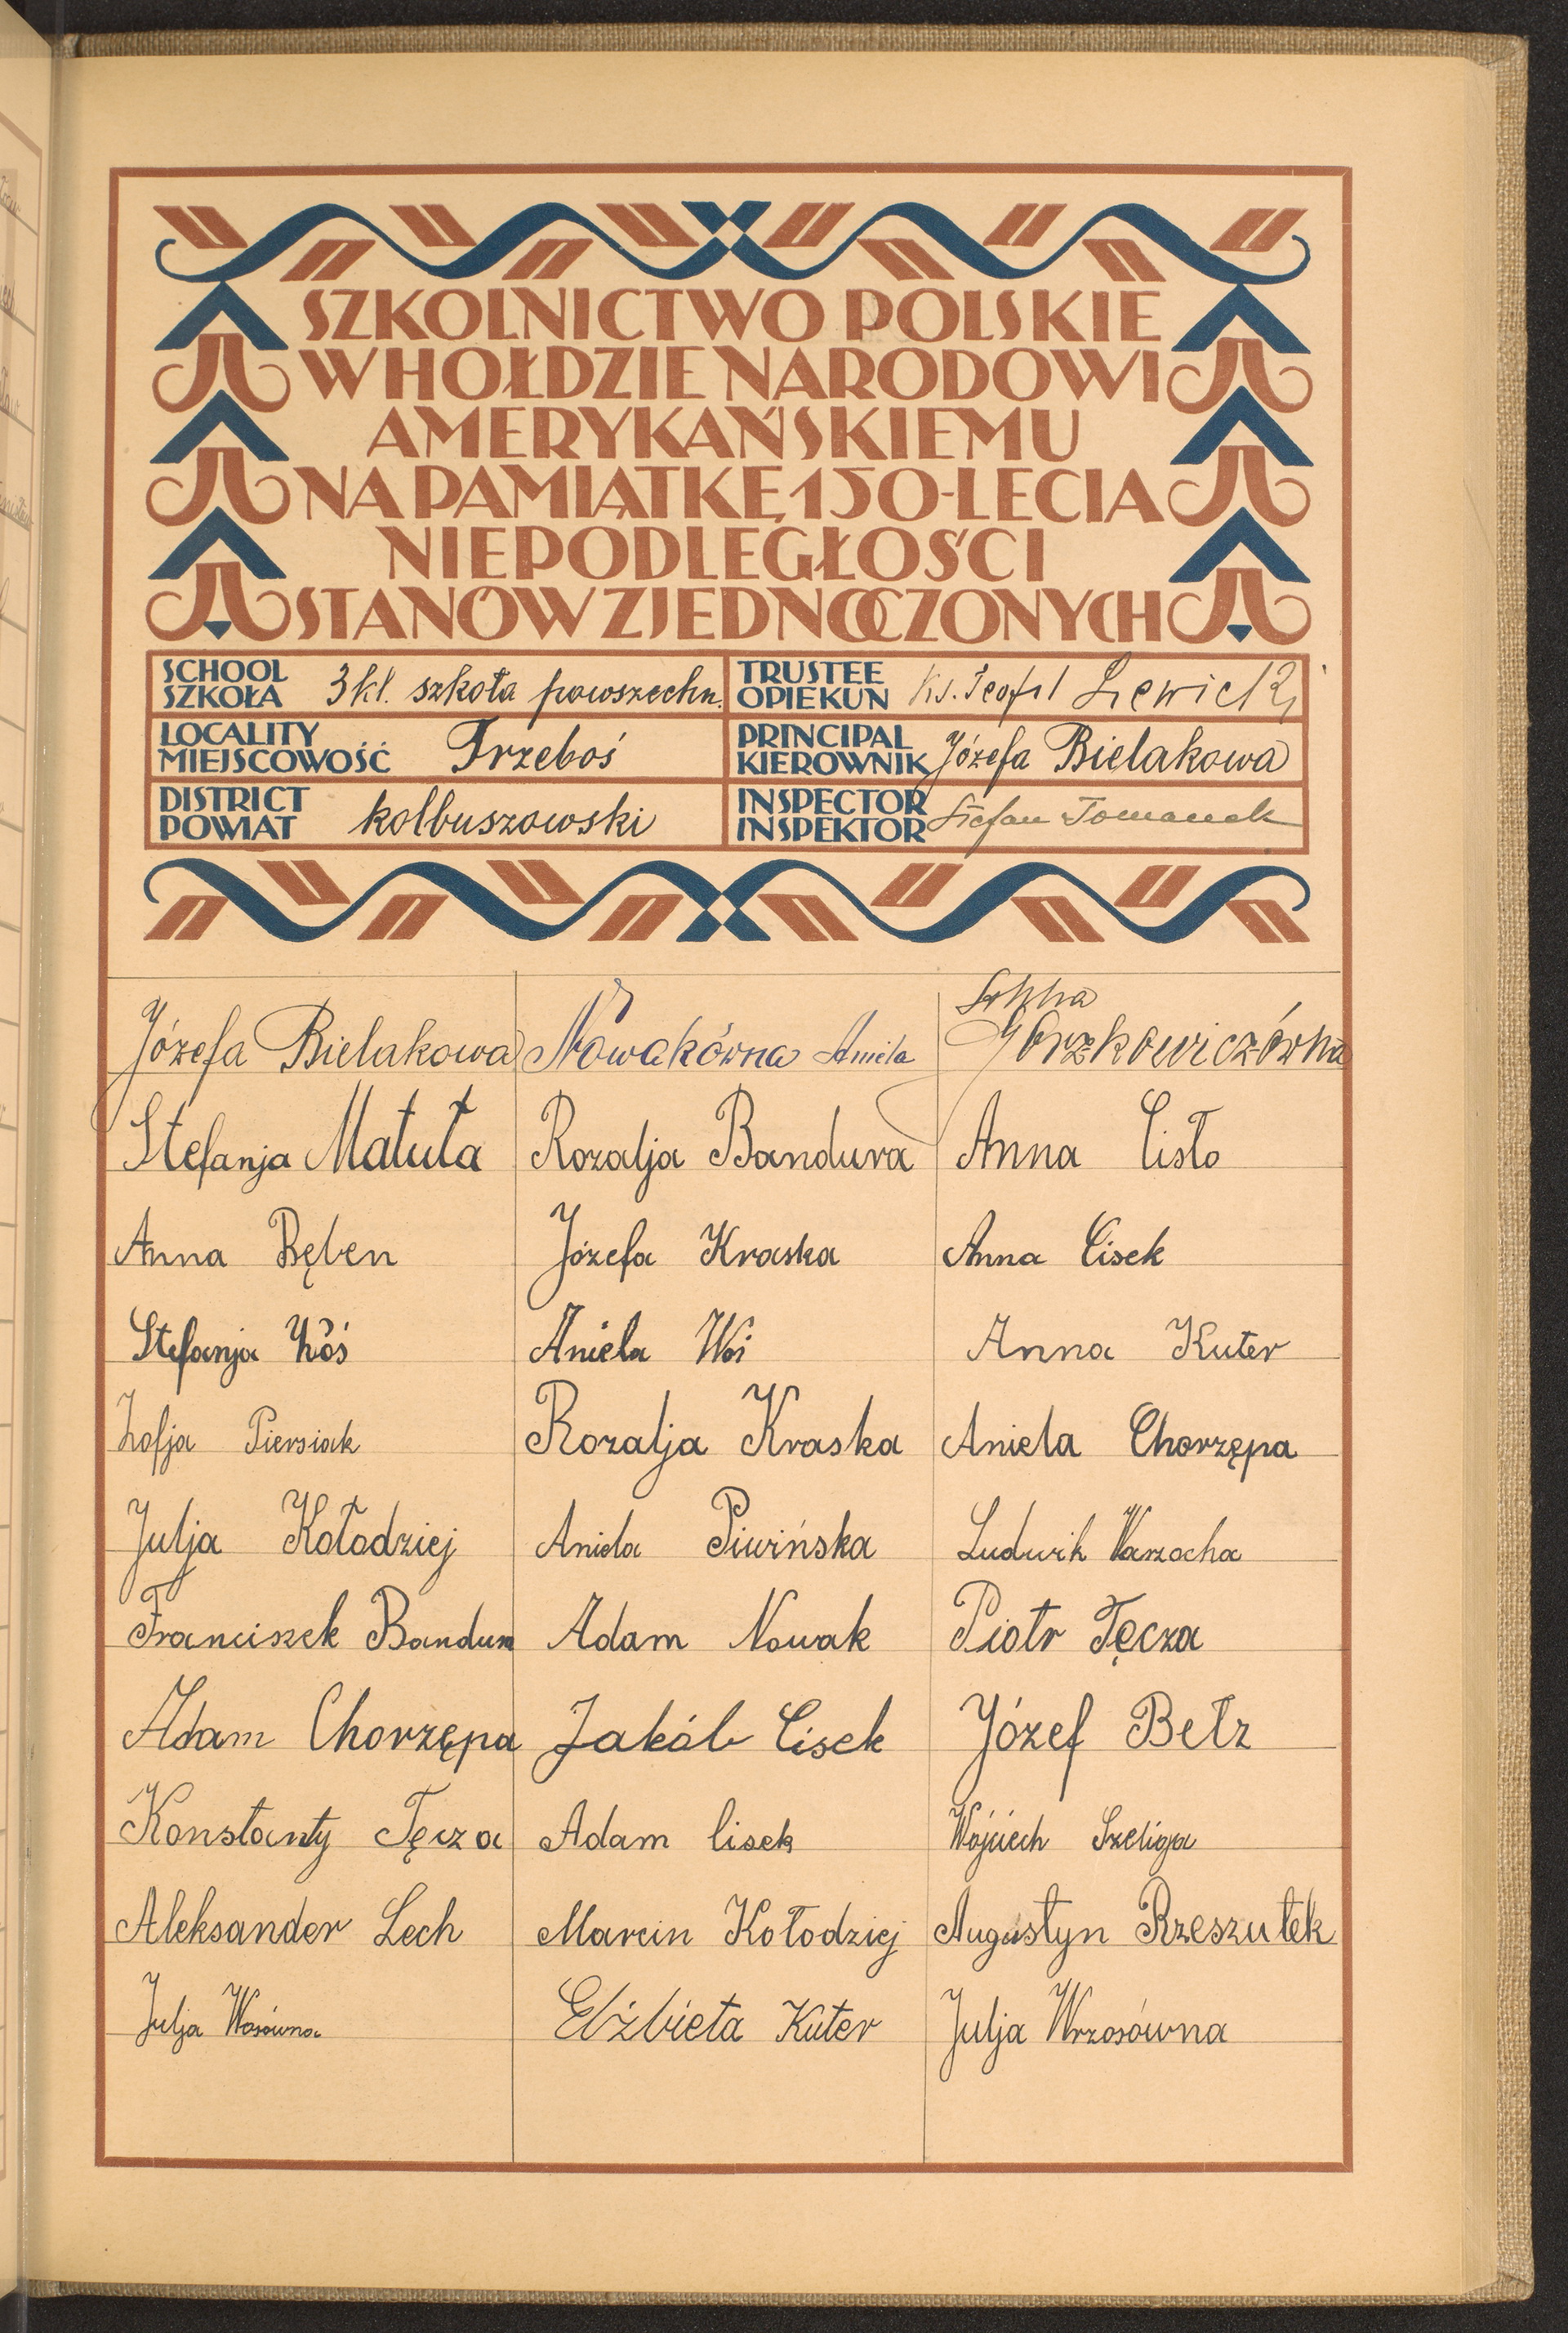 SZKOLNICTWO POLSKIE
W HOŁDZIE NARODOWI
AMERYKAŃSKIEMU
NA PAMIĄTKĘ 150-LECIA
NIEPODLEGŁOŚCI
STANÓW ZJEDNOCZONYCH
SCHOOL
SZKOŁA 3 kl. szkoła powszechn.
TRUSTEE
OPIEKUN Ks. Teofil Lewicki
LOCALITY
MIEJSCOWOŚĆ Trzeboś
PRINCIPAL
KIEROWNIK Józefa Bielakowa
DISTRICT
POWIAT kolbuszowski
INSPECTOR
INSPEKTOR Stefan Tomanek
Józefa Bielakowa Nowakówna Aniela Gorzkowiczówna
Stefanja Matuła Rozalja Bandura Anna Cisło
Anna Bęben Józefa Kraska Anna Cisek
Stefanja Aniela Anna Kuter
Zofja Piersiak Rozalja Kraska Aniela Chorzępa
Julja Kołodziej Aniela Piwińska Ludwik Warzocha
Franciszek Bandura Adam Nowak Piotr Tęcza
Adam Chorzępa Jakób Cisek Józef Bełz
Konstanty Tęcza Adam Cisek Wojciech Szeliga
Aleksander Lech Marcin Kołodziej Augustyn Rzeszutek
Julja Wosówna Elżbieta Kuter Julja Wrzosówna